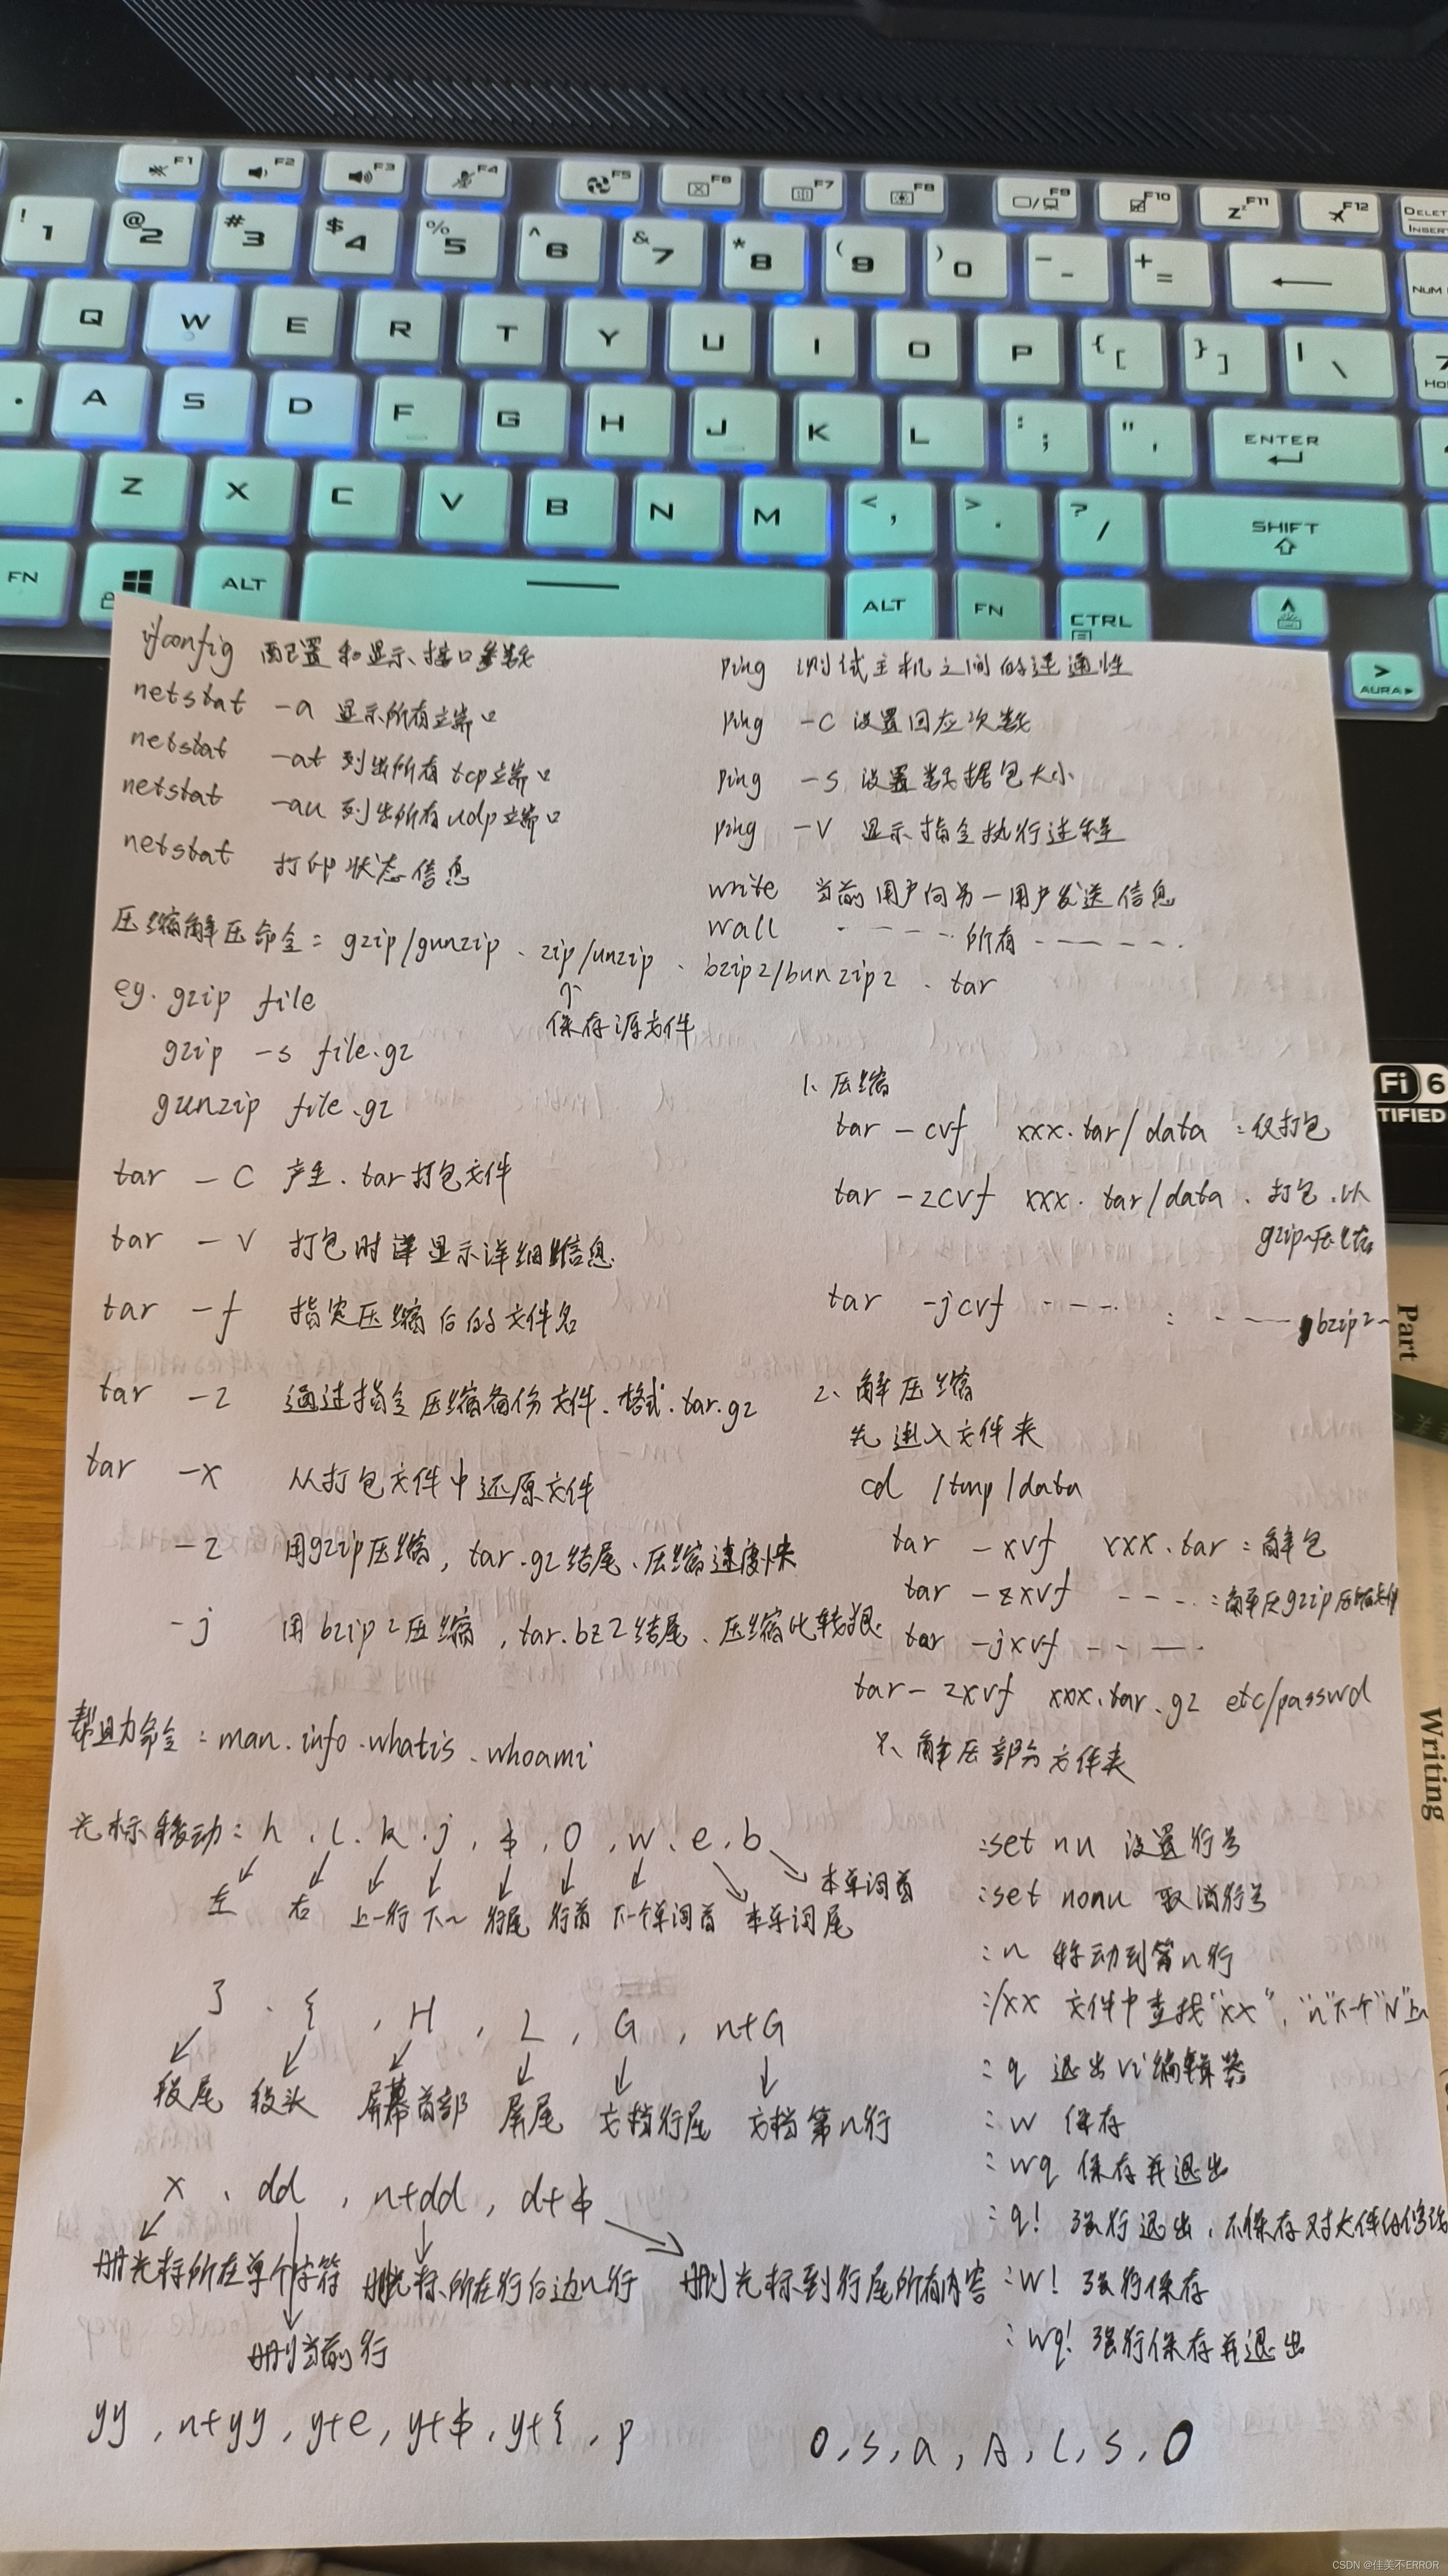 F1 F2 F3 F4 F5 F6 F7 F8 F9 F10 F11 F12 DELETE
INSERT
! 1 @ 2 # 3 $ 4 % 5 ^ 6 & 7 * 8 ( 9 ) 0 - + = NUM
Q W E R T Y U I O P { [ } ] | \ 7
A S D F G H J K L : ; " ' ENTER
Z X C V B N M < , > . ? / SHIFT
FN ALT ALT FN CTRL
AURA
ifconfig 配置和显示接口参数
netstat -a 显示所有端口
netstat -at 列出所有tcp端口
netstat -au 列出所有udp端口
netstat 打印状态信息
ping 测试主机之间的连通性
ping -c 设置回应次数
ping -s 设置数据包大小
ping -v 显示指令执行过程
write 当前用户向另一用户发送信息
wall - - - - 所有 - - - - -
压缩解压命令: gzip/gunzip、zip/unzip、bzip2/bunzip2、tar
保存源文件
eg. gzip file
gzip -s file.gz
gunzip file.gz
tar -c 产生.tar打包文件
tar -v 打包时显示详细信息
tar -f 指定压缩后的文件名
tar -z 通过指令压缩备份文件.格式.tar.gz
tar -x 从打包文件中还原文件
-z 用gzip压缩, tar.gz结尾、压缩速度快
-j 用bzip2压缩, tar.bz2结尾、压缩比
1、压缩
tar -cvf xxx.tar/data :仅打包
tar -zcvf xxx.tar/data . 打包.以
gzip压缩
tar -jcvf - - - - : - - - bzip2~
2、解压缩
先进入文件夹
cd /tmp/data
tar -xvf xxx.tar :解包
tar -zxvf - - - - :解压gzip压缩文件
tar -jxvf - - -
tar -zxvf xxx.tar.gz etc/passwd
只解压部分文件夹
帮助命令:man.info.whatis.whoami
光标移动:h.l.k.j.$.0.w.e.b
左 右 上一行 下~ 行尾 行首 下一个单词首 本单词尾 本单词首
}、{, H, L, G, n+G
段尾 段头 屏幕首部 屏尾 文档行尾 文档第n行
x、dd, n+dd, d+$
删光标所在单个字符 删光标所在行后边n行 删光标到行尾所有内容
删当前行
yy, n+yy, y+e, y+$, y+{, p
:set nu 设置行号
:set nonu 取消行号
:n 移动到第n行
:/xx 文件中查找"xx", "n"下一个"N"上
:q 退出vi编辑器
:w 保存
:wq 保存并退出
:q! 强行退出,不保存对文件的修改
:w! 强行保存
:wq! 强行保存并退出
o, s, a, A, i, S, O
Fi 6
TIFIED
Part
Writing
CSDN @佳美不ERROR